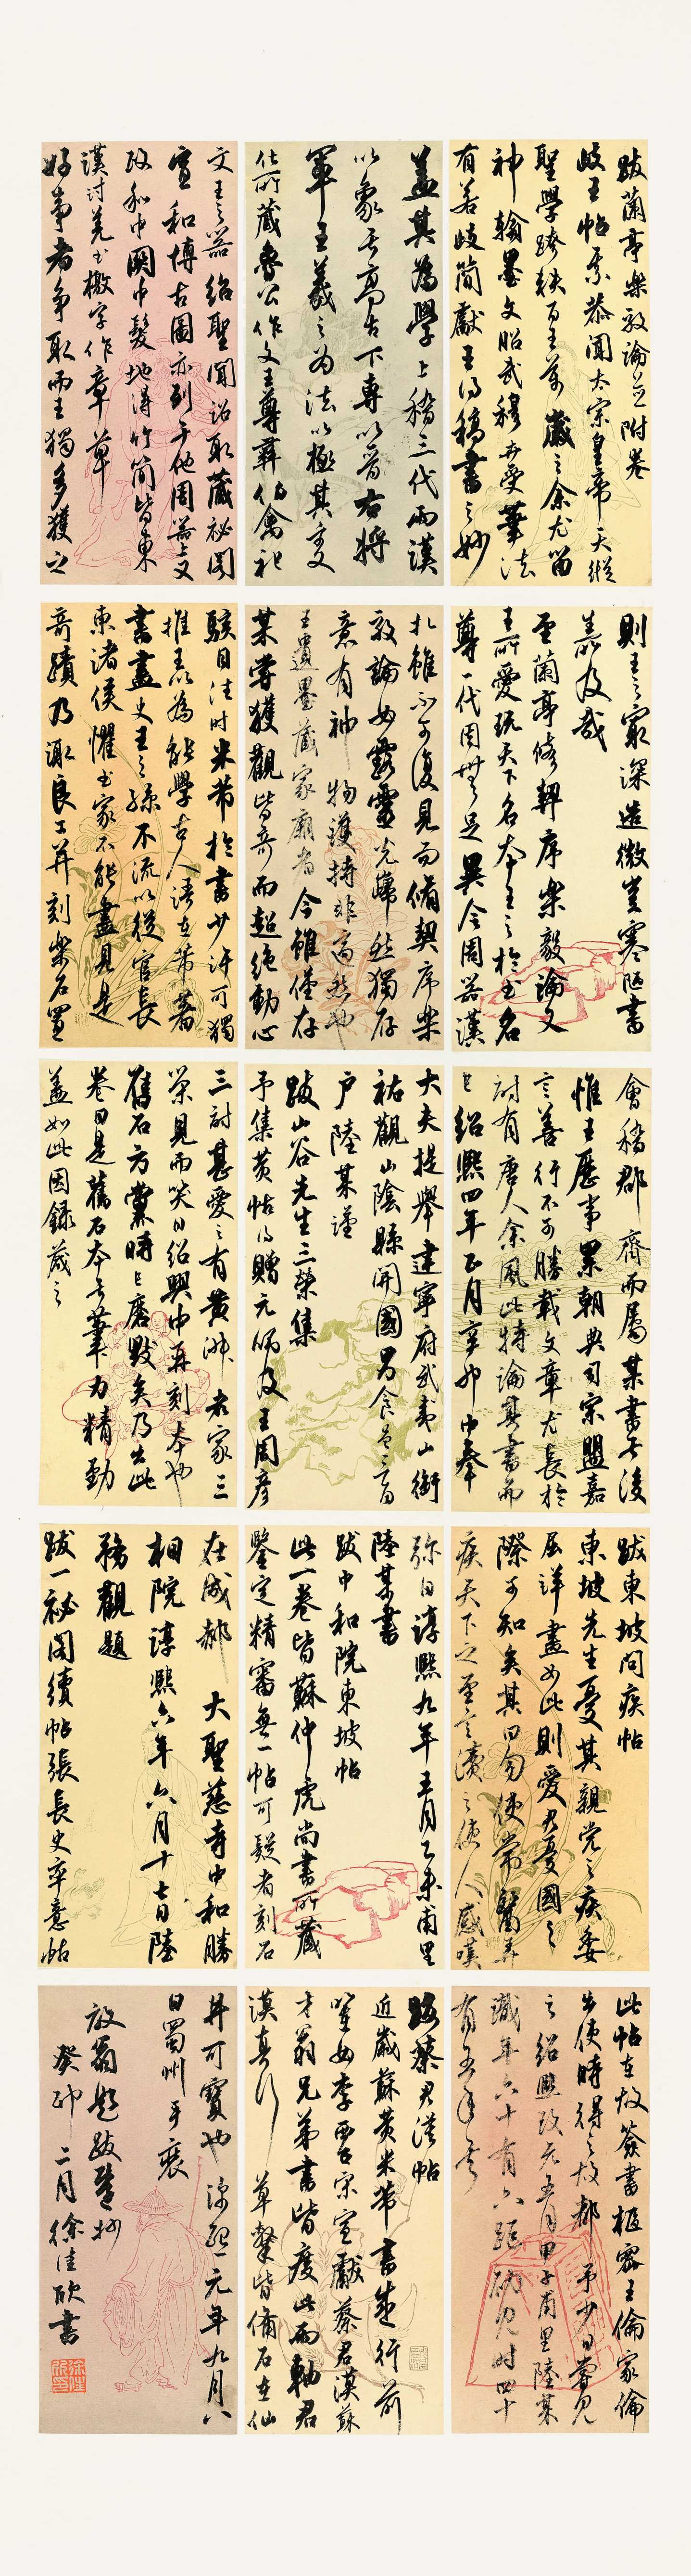 跋蘭亭樂毅論並附卷
岐王帖某恭聞太宗皇帝天縱
聖學跨軼百王萬歲之余尤留
神翰墨文昭武穆世受筆法
有若岐簡獻王得稿書之妙
蓋其為學上稽三代兩漢
以象其高古下專以晉右將
軍王羲之為法以極其變
仕所藏魯公作文王尊彝伯禽祀
文王之器紹聖聞詔取藏秘閣
宣和博古圖亦列于他周器上又
政和中關中發地得竹簡皆東
漢討羌書檄字作章草
好事者爭取而王獨多獲之
則王之窮深造微豈寒陋書
生所及哉
至蘭亭修禊序樂毅論又
王所愛玩天下名本王之於書名
尊一代固無足異今周器漢
札雖不可復見而脩禊序樂
毅論如靈光巋然獨存
意有神物護持非高然也
王遺墨藏家廟者今雖僅存
某嘗獲觀皆奇而超絕動心
駭目法時米芾於書少許可獨
推王以為能學古人語在芾著
書畫史王之孫不流以從官長
東諸侯懼書家不能盡見是
奇蹟乃諏良工并刻樂石置
會稽郡齋而屬某書其後
惟王歷事累朝典司宗盟嘉
言善行不可勝載文章尤長於
詩有唐人余風此特論其書而
已紹熙四年正月辛卯中奉
大夫提舉建寧府武夷山衝
祐觀山陰縣開國男食邑三百
户陸某謹
跋山谷先生三榮集
予集黃帖得贈元師及王周彥
三詩甚愛之有黃淋者家三
榮見而笑曰紹興中再刻本也
舊石方黨時已磨毀矣乃出此
卷曰是舊石本其筆力精勁
蓋如此因錄藏之
跋東坡問疾帖
東坡先生憂其親黨之疾委
屈詳盡如此則愛君憂國之
際可知矣其曰勿使常醫弄
疾天下之至言讀之使人感嘆
彌日淳熙九年五月乙未甫里
陸某書
跋中和院東坡帖
此一卷皆蘇仲虎尚書所藏
鑒定精審無一帖可疑者刻石
在成都大聖慈寺中和勝
相院淳熙六年六月十七日陸
務觀題
跋一祕閣續帖張長史率意帖
此帖在故簽書樞密王倫家倫
出使時得之故都予少日嘗見
之紹熙改元五月甲子甫里陸某
識年六十有六距初見時四十
有五年矣
跋蔡君謨帖
近歲蘇黃米芾書盛行前
輩如李西臺宋宣獻蔡君謨蘇
才翁兄弟書皆廢此兩軸君
謨真行草隸皆備石在仙
井可寶也淳熙元年九月八
日蜀州手裝
放翁題跋選抄
癸卯二月徐佳欣書